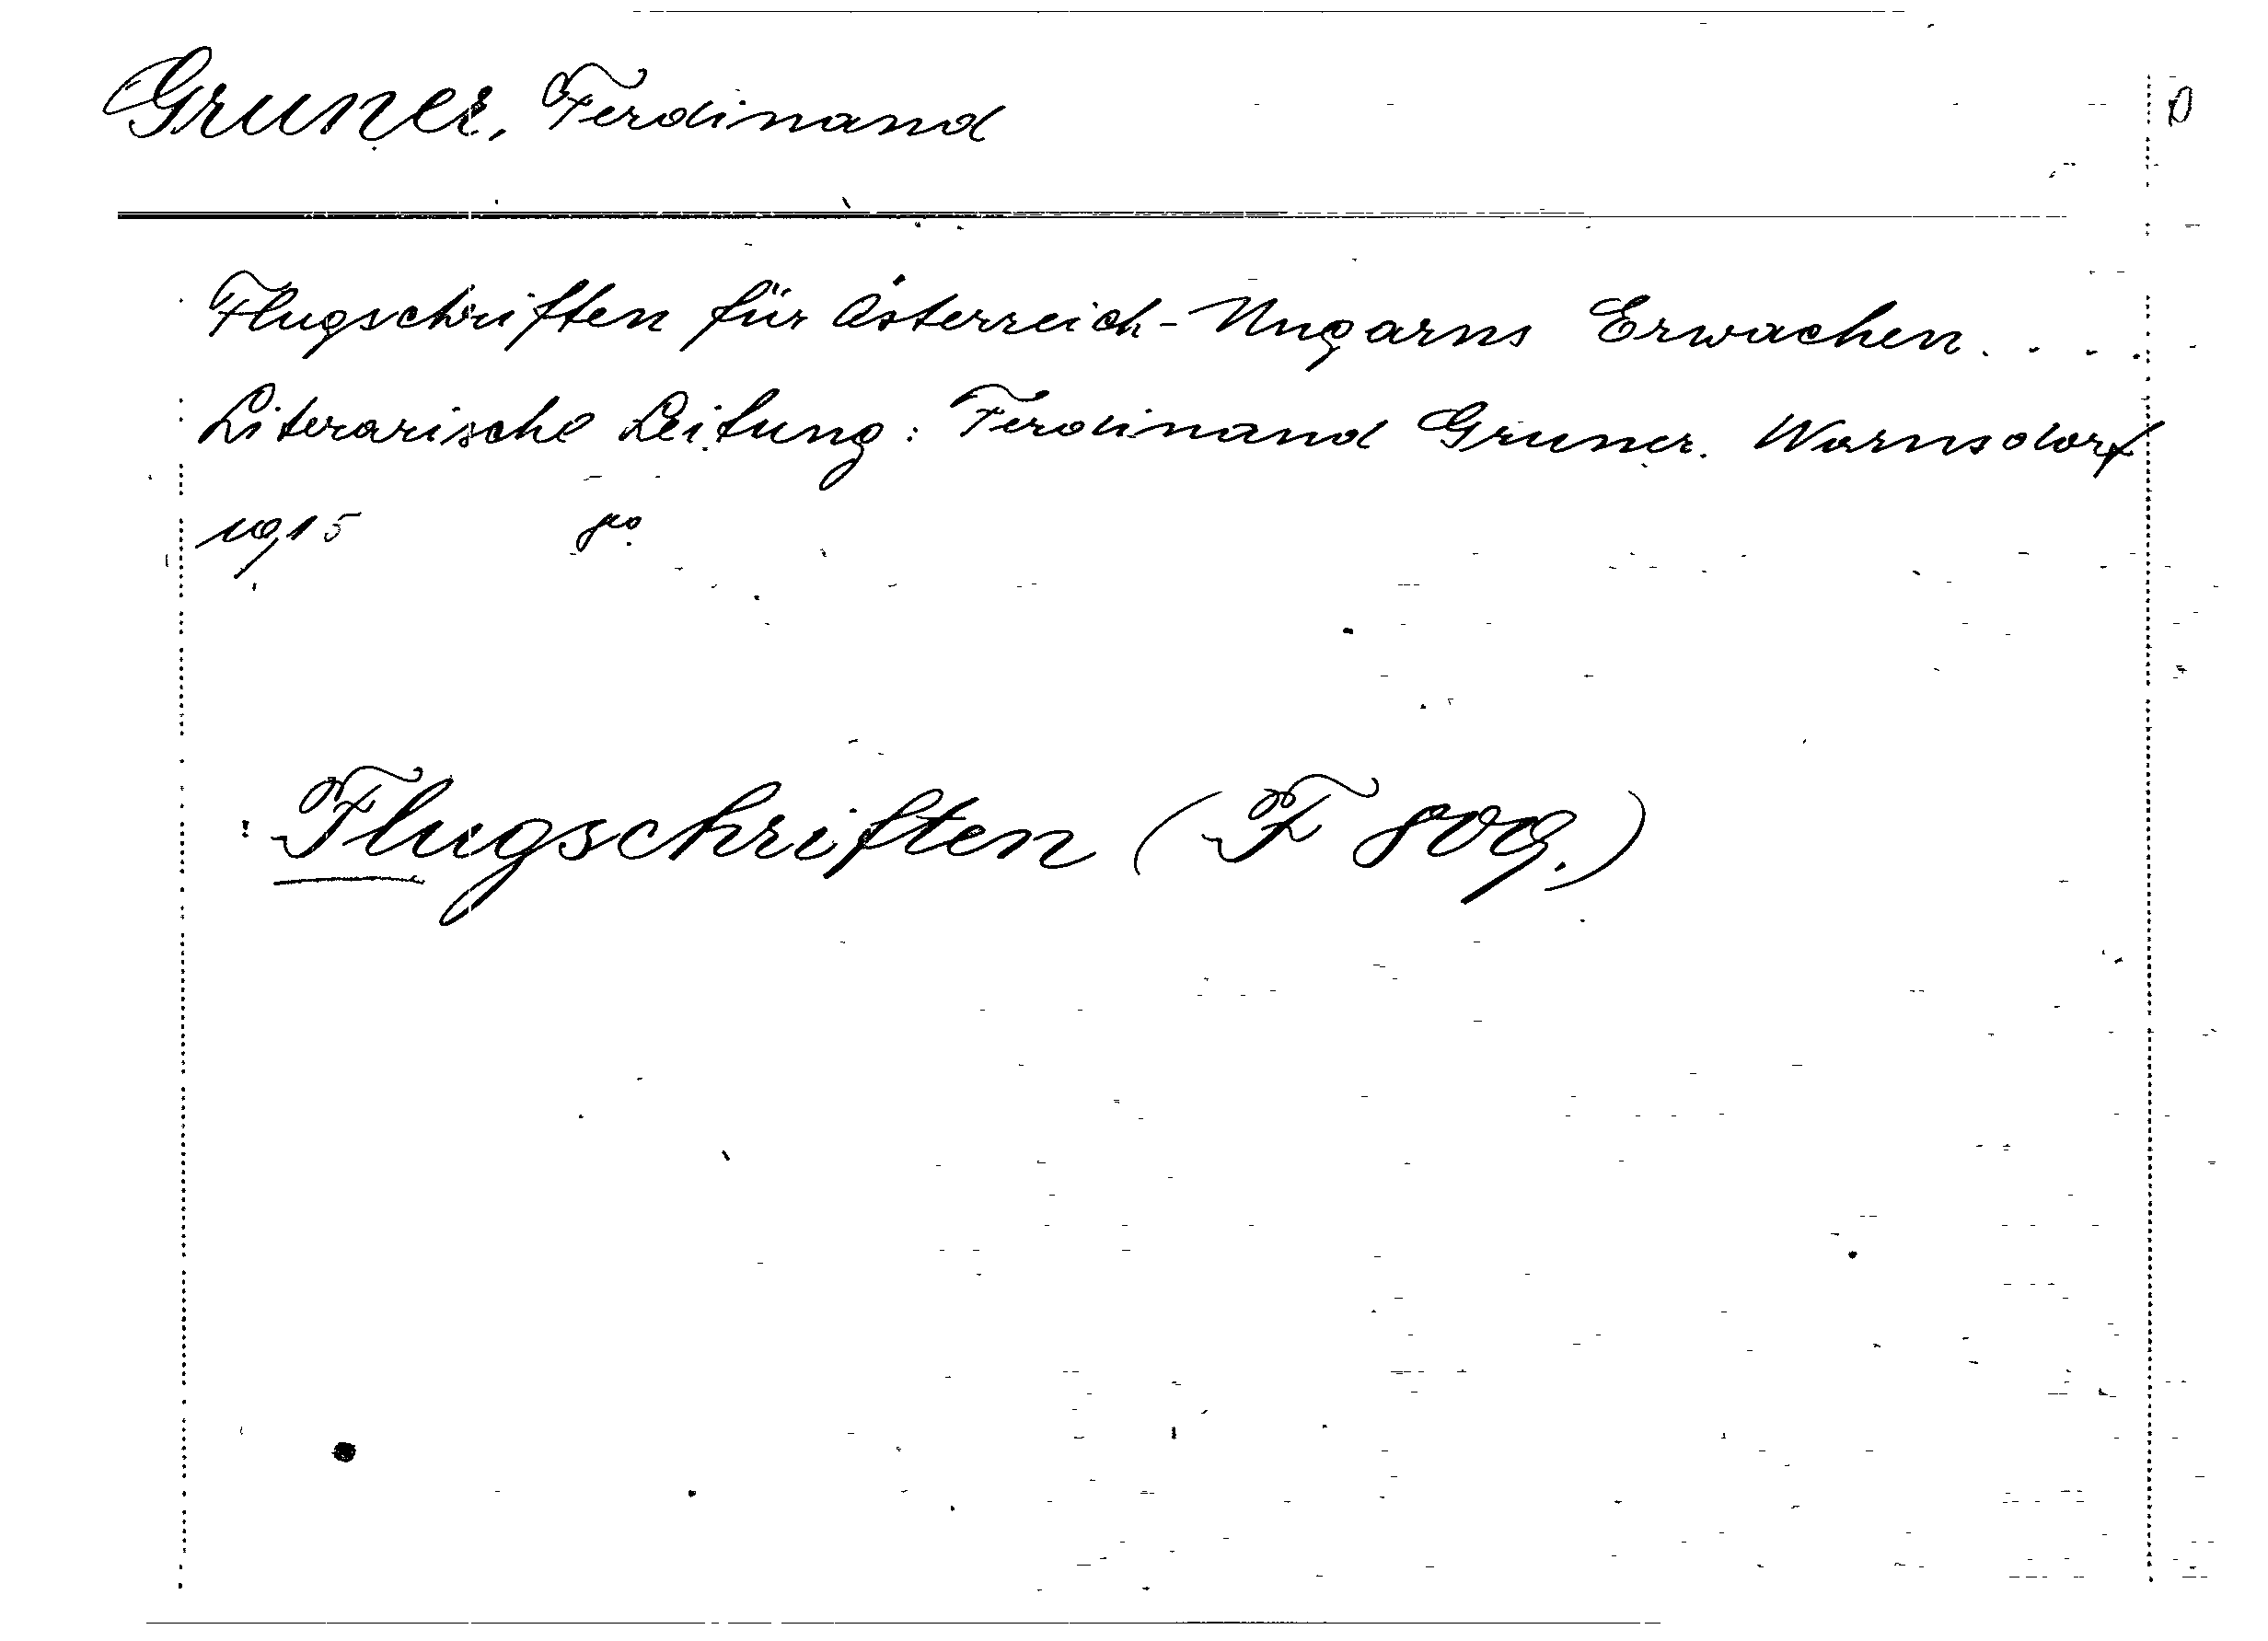 Gruner, Ferdinand
Flugschriften für Österreich-Ungarns Erwachen....
Literarische Leitung: Ferdinand Gruner. Warnsdorf
1915 8°.
Flugschriften (F 809.)